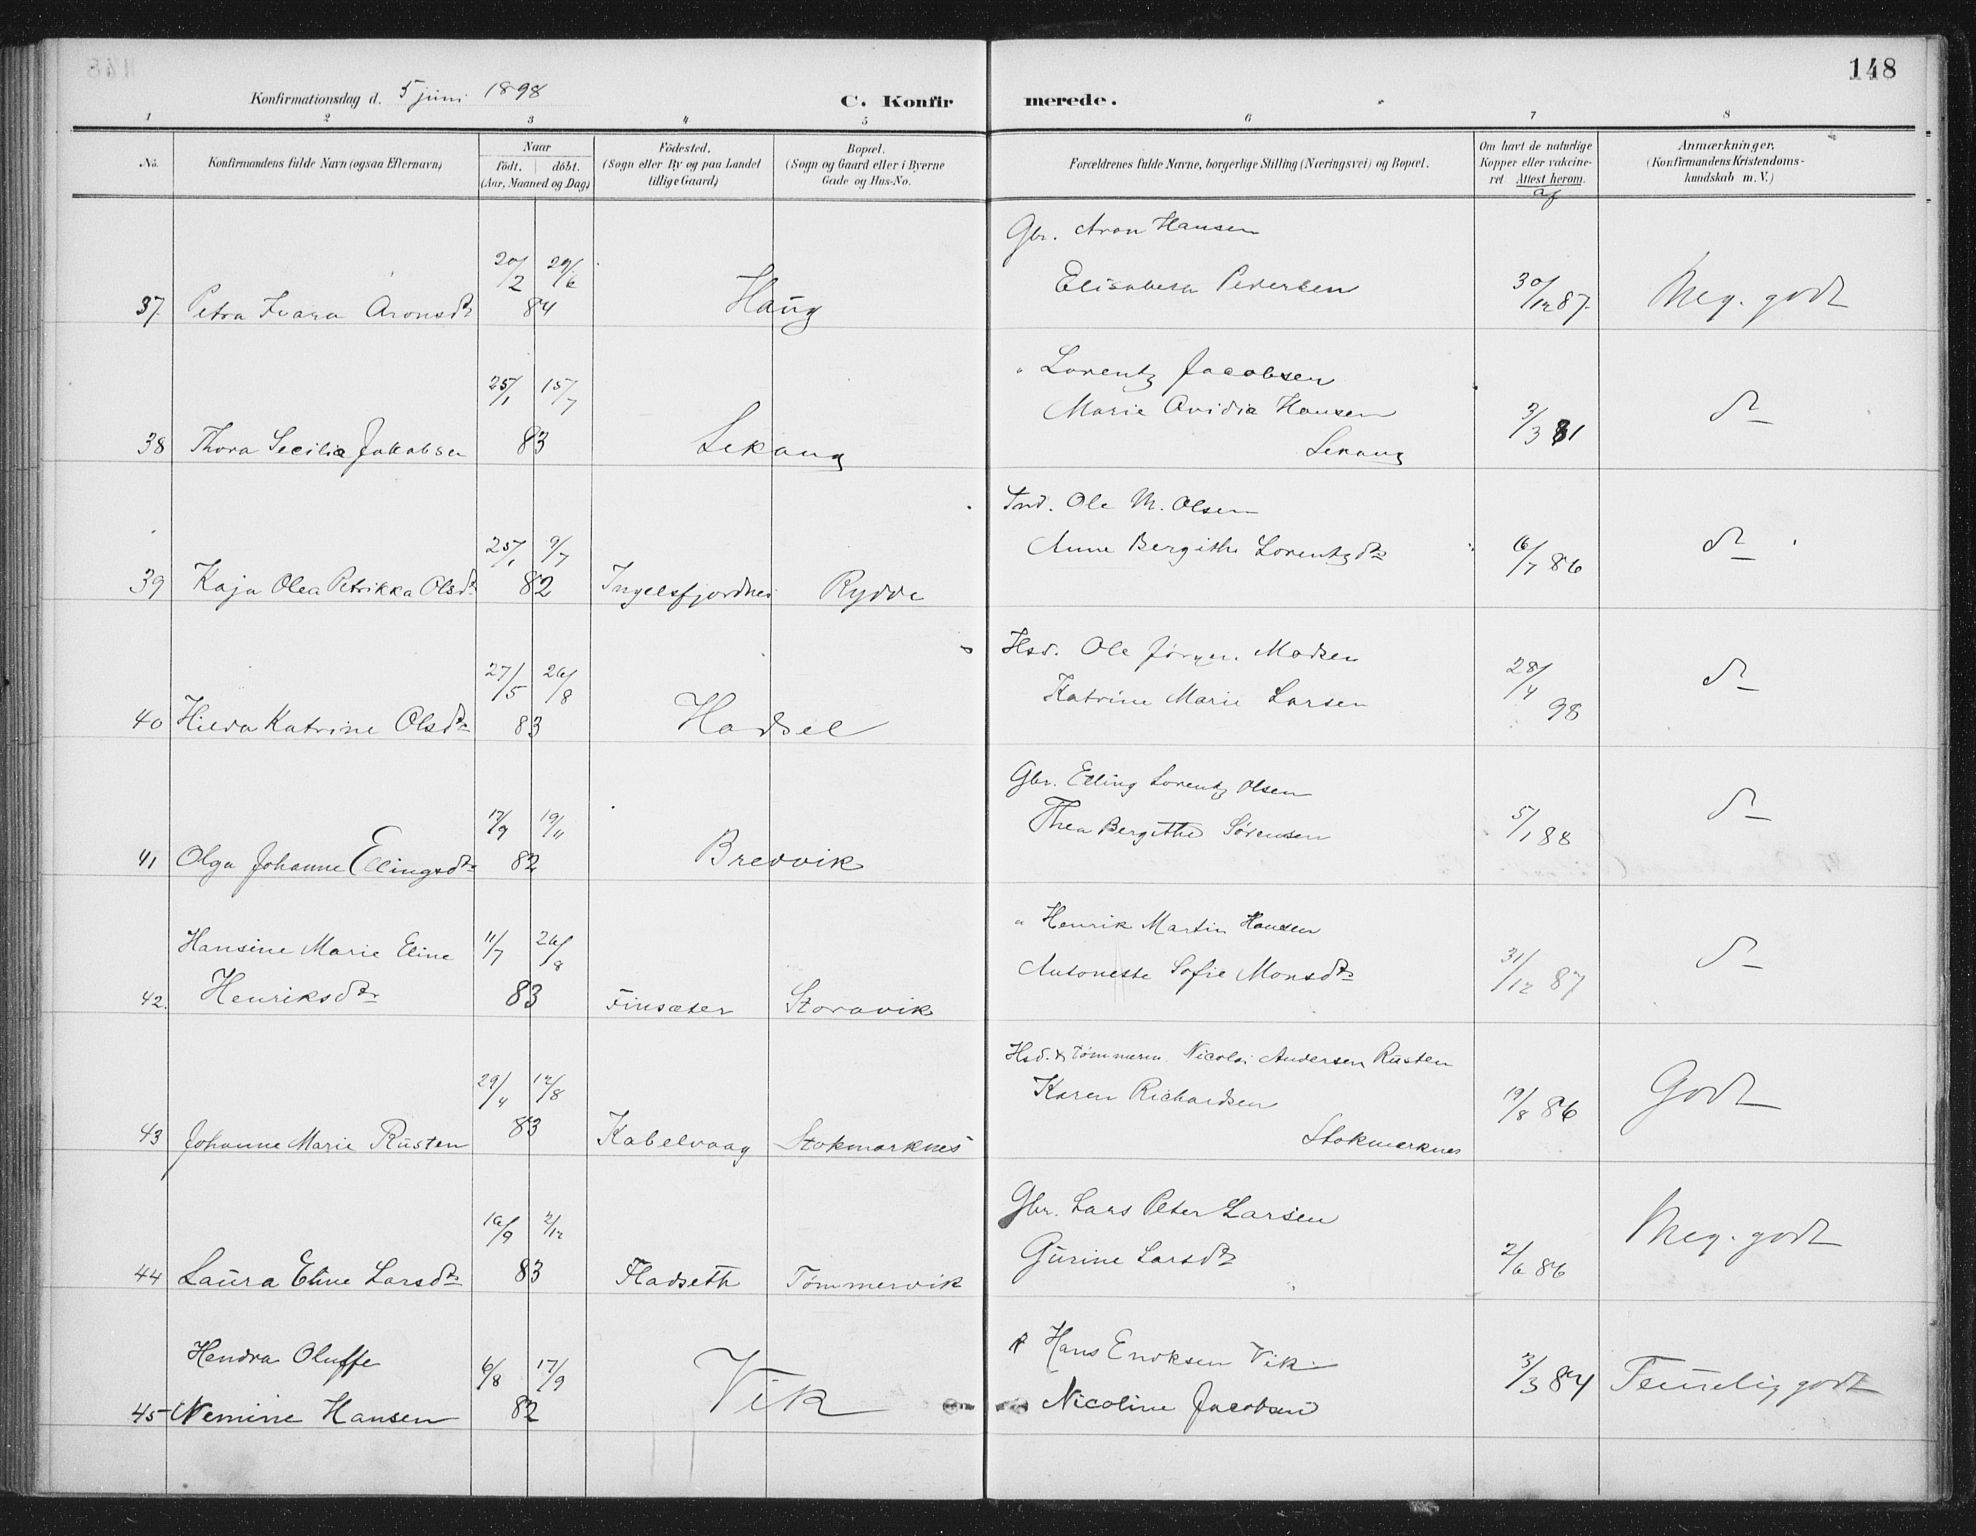 148
Konfirmationsdag d. 5 juni 1898
C. Konfirmerede.
1 2 3 4 5 6 7 8
No. Konfirmandens fulde Navn (ogsaa Efternavn) Naar födt. döbt. (Aar, Maaned og Dag) Födested. (Sogn eller By og paa Landet tillige Gaard) Bopæl. (Sogn og Gaard eller i Byerne Gade og Hus-No. Forældrenes fulde Navne, borgerlige Stilling (Næringsvei) og Bopæl. Om havt de naturlige Kopper eller vakcineret Attest herom. af Anmærkninger. (Konfirmandens Kristendomskundskab m. V.)
Gbr. Aron Hansen
Elisabeth Pedersen
37 Petra Ivara Aronsdtr 20/2 29/6 84 Haug 30/12 87. Meg. godt
" Lorentz Jacobsen
Marie Ovidia Hansen
38 Thora Secilia Jakobsen 25/1 15/7 83 Lekang Lekang 3/3 81 do
Ind. Ole M. Olsen
Anne Bergithe Lorentzdtr
39 Kaja Olea Petrikka Olsdtr 25/1 9/7 82 Ingelsfjordnes Rydde 16/7 86 do
Hsd. Ole Jørgen Madsen
Katrine Marie Larsen
40 Hilda Katrine Olsdtr 27/5 26/8 83 Hadsel 28/4 98 do
Gbr. Elling Lorentz Olsen
Thea Bergithe Sørensen
41 Olga Johanne Ellingsdtr 17/9 19/11 82 Bredvik 5/1 88 do
" Henrik Martin Hansen
Antonette Sofie Monsdtr
Hansine Marie Eline
42. Henriksdtr 11/7 26/8 83 Finsæter Storavik 31/12 87 do
Hsd. & Tømmerm. Nicolai Andersen Rusten
Karen Richardsen
Stokmarknes
43 Johanne Marie Rusten 29/4 12/8 83 Kabelvaag Stokmarknes 19/8 86 Godt
Gbr. Lars Peter Larsen
Gurine Larsdtr
44 Laura Eline Larsdtr 16/9 2/12 83 Fladseth Tømmervik 2/6 86 Meg. godt
Hans Eriksen Vik
Nicoline Jacobsen
Hendra Oluffe
45 Nemine Hansen 6/8 17/9 82 Vik 3/3 84 Temmelig godt